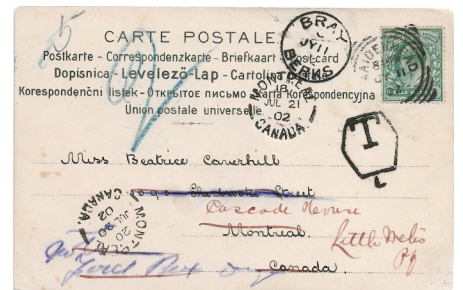 CARTE POSTALE
Postkarte - Correspondenzkarte - Briefkaart - Post-card
Dopisnica - Levelező-Lap - Cartolina
Korespondenční listek - Открытое письмо - Karta Korespondencyjna
Union postale universelle
BRAY
JY 11
BERKS
MONTREAL
18
JUL 21
02
CANADA
T
Miss Beatrice Caverhill
Street
Cascade House
Montreal
Little Metis
Pq
Canada.
MONTREAL
20
JUL 20
02
CANADA